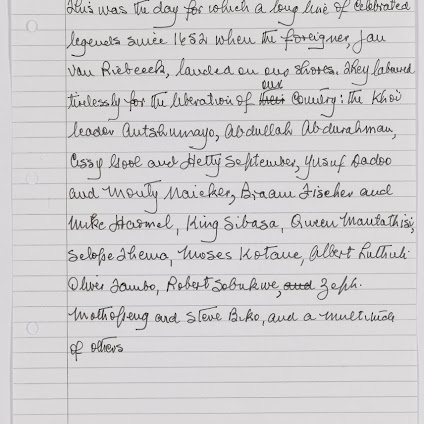 This was the day for which a long line of celebrated
legends since 1652 when the foreigner, Jan
van Riebeeck, landed on our shores. They laboured
tirelessly for the liberation of their our Country: the Khoi
leader Autshumayo, Abdullah Abdurahman,
Cissy Gool and Hetty September, Yusuf Dadoo
and Monty Naicker, Braam Fischer and
Mike Harmel, King Sibasa, Queen Mantathisi,
Selope Thema, Moses Kotane, Albert Luthuli
Oliver Tambo, Robert Sobukwe, and Zeph.
Mothopeng and Steve Biko, and a multitude
of others